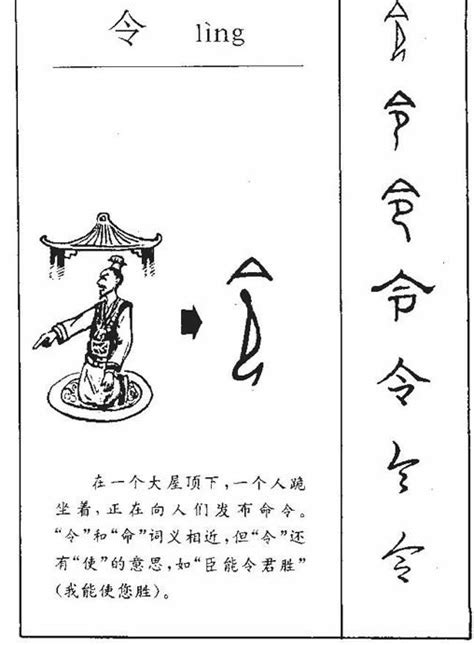 令 lìng
在一个大屋顶下，一个人跪
坐着，正在向人们发布命令。
“令”和“命”词义相近，但“令”还
有“使”的意思，如“臣能令君胜”
(我能使您胜)。
令
令
令
令
令
令
令